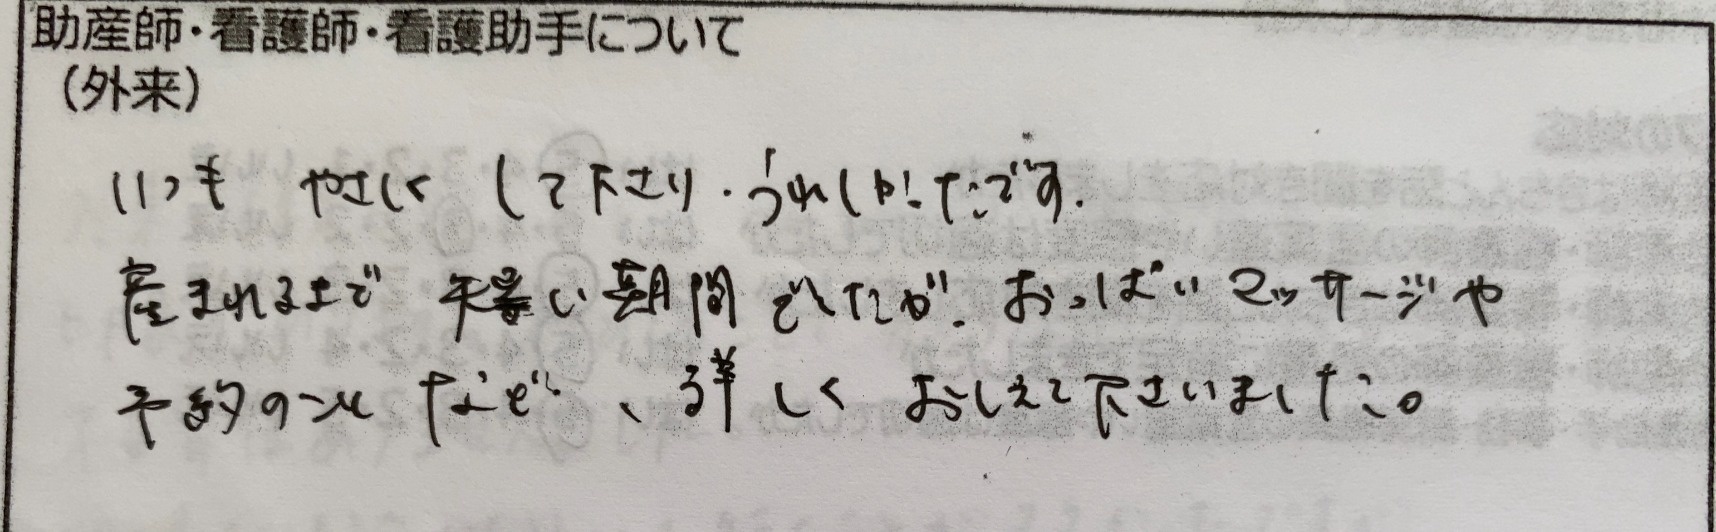 助産師・看護師・看護助手について
(外来)
いつも やさしく して下さり、うれしかったです。
産まれるまで 短い期間でしたが、おっぱいマッサージや
予約のことなど、詳しく おしえて下さいました。